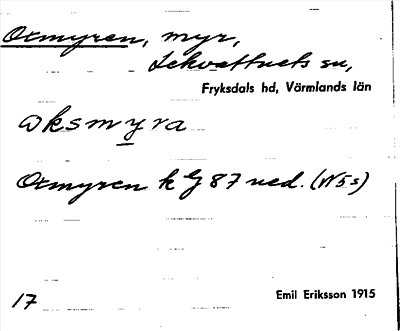 Oxmyren, myr,
Lekvattnets sn,
Fryksdals hd, Värmlands län
ɷksmyra
Oxmyren k G 87 ned. (N5s)
17
Emil Eriksson 1915